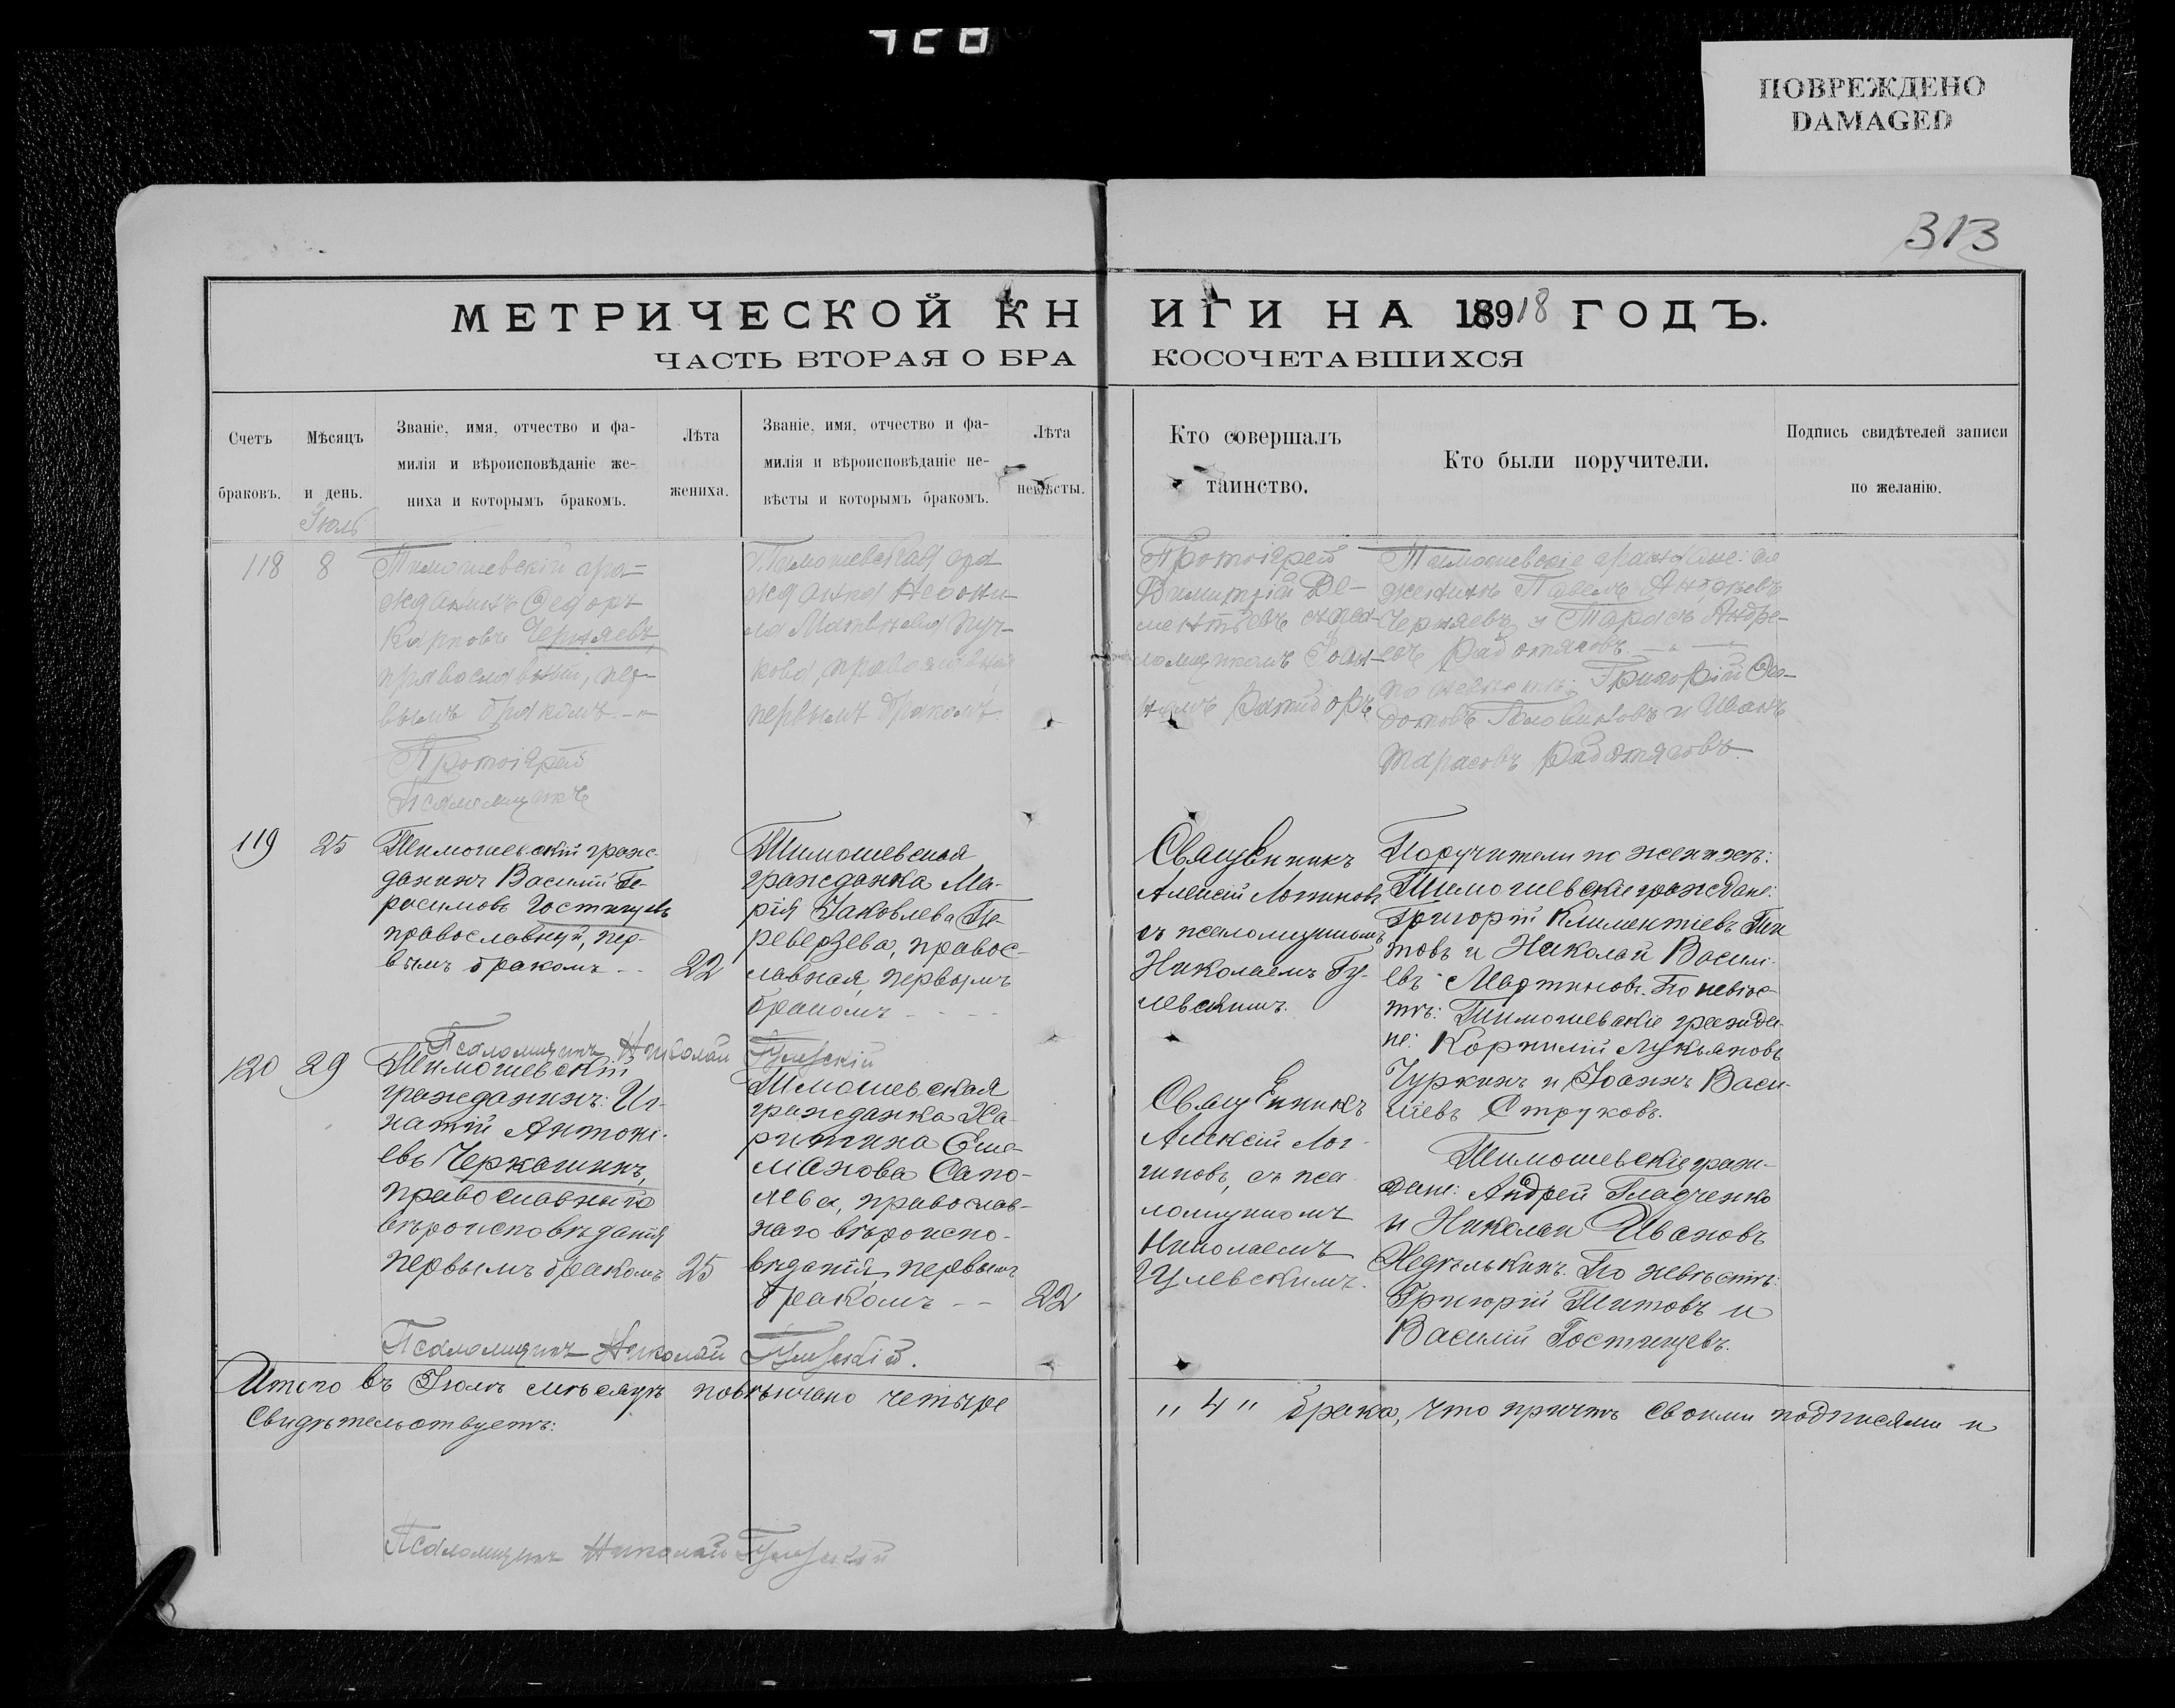 ПОВРЕЖДЕНО
DAMAGED
313
МЕТРИЧЕСКОЙ КНИГИ НА 18918 ГОДЪ.
ЧАСТЬ ВТОРАЯ О БРАКОСОЧЕТАВШИХСЯ
Счетъ
браковъ.
Мѣсяцъ
и день.
Званіе, имя, отчество и фа-
милія и вѣроисповѣданіе же-
ниха и которымъ бракомъ.
Лѣта
жениха.
Званіе, имя, отчество и фа-
милія и вѣроисповѣданіе не-
вѣсты и которымъ бракомъ.
Лѣта
невѣсты.
Кто совершалъ
таинство.
Кто были поручители.
Подпись свидѣтелей записи
по желанію.
Іюль
118
8
Тимошевскій гра-
жданинъ Ѳедоръ
Карповъ Черняевъ,
православный, пер-
вымъ бракомъ
Протоіерей
Псаломщикъ
Тимошевская гра
жданка
Матвѣева Пуч-
кова, православная
первымъ бракомъ.
Протоіерей
Димитрій Де-
ментьевъ съ пса-
ломщикомъ Іоан-
номъ
Тимошевскіе граждане: по
женихѣ Павелъ Андреевъ
Черняевъ и Тарасъ Андре-
евъ
по невѣстѣ: Григорій Ѳе-
дотовъ и Иванъ
Тарасовъ
119
25
Тимошевскій граж-
данинъ Василій Ге-
расимовъ Гостищевъ
православный, пер-
вымъ бракомъ
22
Тимошевская
гражданка Ма-
рія Яковлева Пе-
реверзева, правос-
лавная, первымъ
бракомъ
Священникъ
Алексій Логиновъ
съ псаломщикомъ
Николаемъ Гу-
левскимъ.
Поручители по женихѣ:
Тимошевскіе граждане:
Григорій Климентіевъ Ти
товъ и Николай Василі-
евъ Мартиновъ. По невѣс-
тѣ: Тимошевскіе гражда-
не: Корнилій Лукьяновъ
Чуркинъ и Іоаннъ Васи-
ліевъ Струковъ.
Псаломщикъ Николай Гулевскій
120
29
Тимошевскій
гражданинъ: Иг-
натій Антоні-
евъ Черкашинъ,
православнаго
вѣроисповѣданія
первымъ бракомъ
25
Тимошевская
гражданка Ха-
ритина Еме-
ліанова Сапо-
лева, православ-
наго вѣроиспо-
вѣданія, первымъ
бракомъ
22
Священникъ
Алексій Лог-
иновъ, съ пса
ломщикомъ
Николаемъ
Гулевскимъ.
Тимошевскіе граж-
дане: Андрей Гладченко
и Николай Ивановъ
Недѣлькинъ. По невѣстѣ:
Григорій Титовъ и
Василій Гостищевъ.
Псаломщикъ Николай Гулевскій.
Итого въ Іюлѣ мѣсяцѣ повѣнчано четыре „ 4 " брака, что причтъ своими подписями и
Свидѣтельствуетъ:
Псаломщикъ Николай Гулевскій